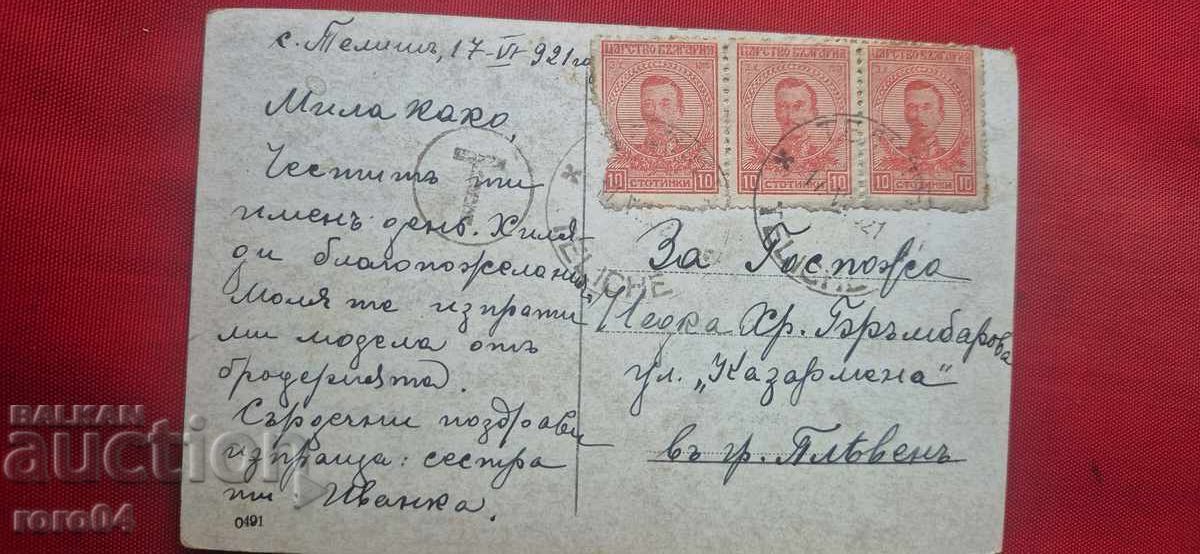 с. Телишъ, 17-VI 921 год
Мила како,
Честитъ ти
именъ день. Хиля-
ди благопожелания
Моля те изпрати
ми модела отъ
бродерията.
Сърдечни поздрави
изпраща: сестра
ти Иванка.
0491
ЦАРСТВО БЪЛГАРИЯ
10 СТОТИНКИ 10
ЦАРСТВО БЪЛГАРИЯ
10 СТОТИНКИ 10
ЦАРСТВО БЪЛГАРИЯ
10 СТОТИНКИ 10
T
TELICHE
TELICHE
За Госпожа
Недка Хр. Бръмбарова
ул. „Казармена"
въ гр. Плѣвенъ
BALKAN
auction
roro04